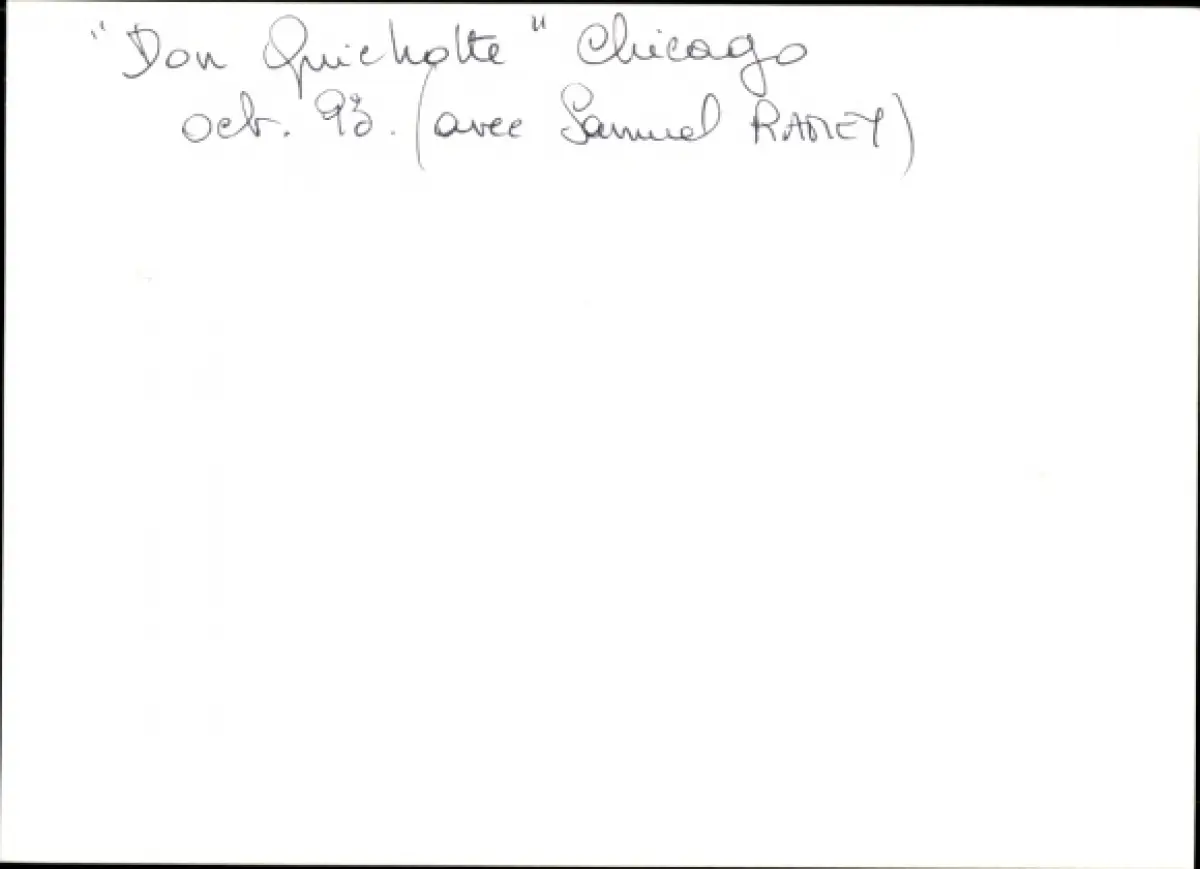 "Don Quicholte" Chicago
oct. 93. (avec Samuel RAMEY)